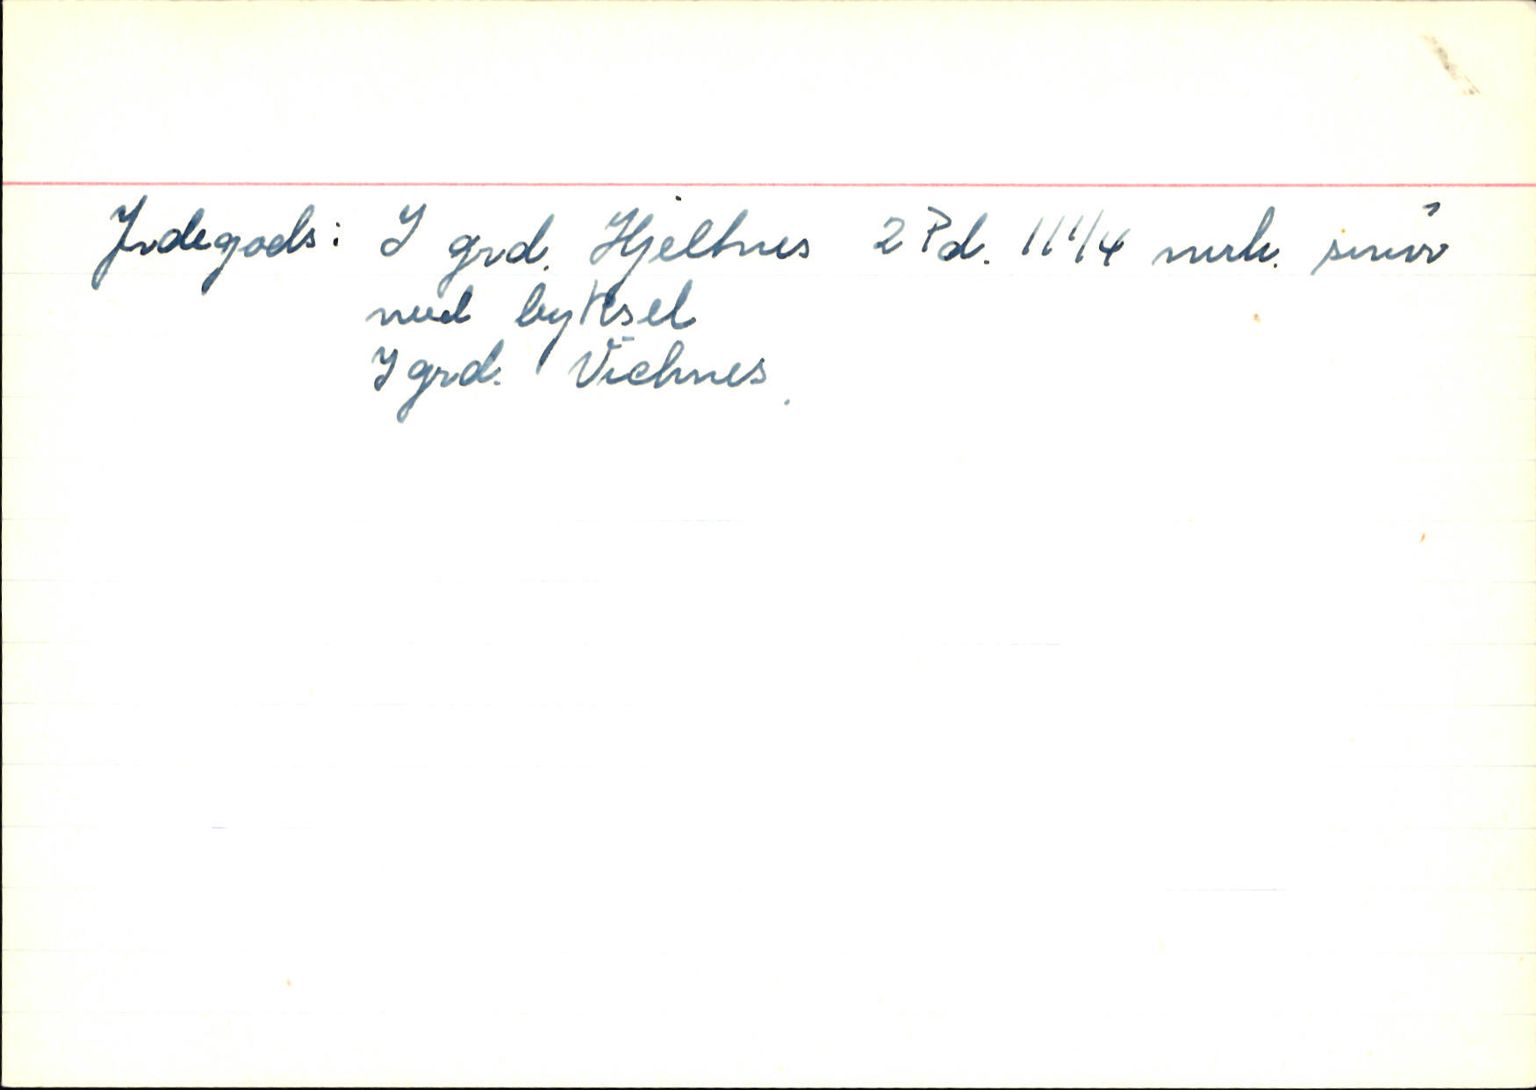 Jordegods: I grd. Hjeltnes 2 Pd. 11 1/4 mrk. smör
med byksel
I grd. Vichnes